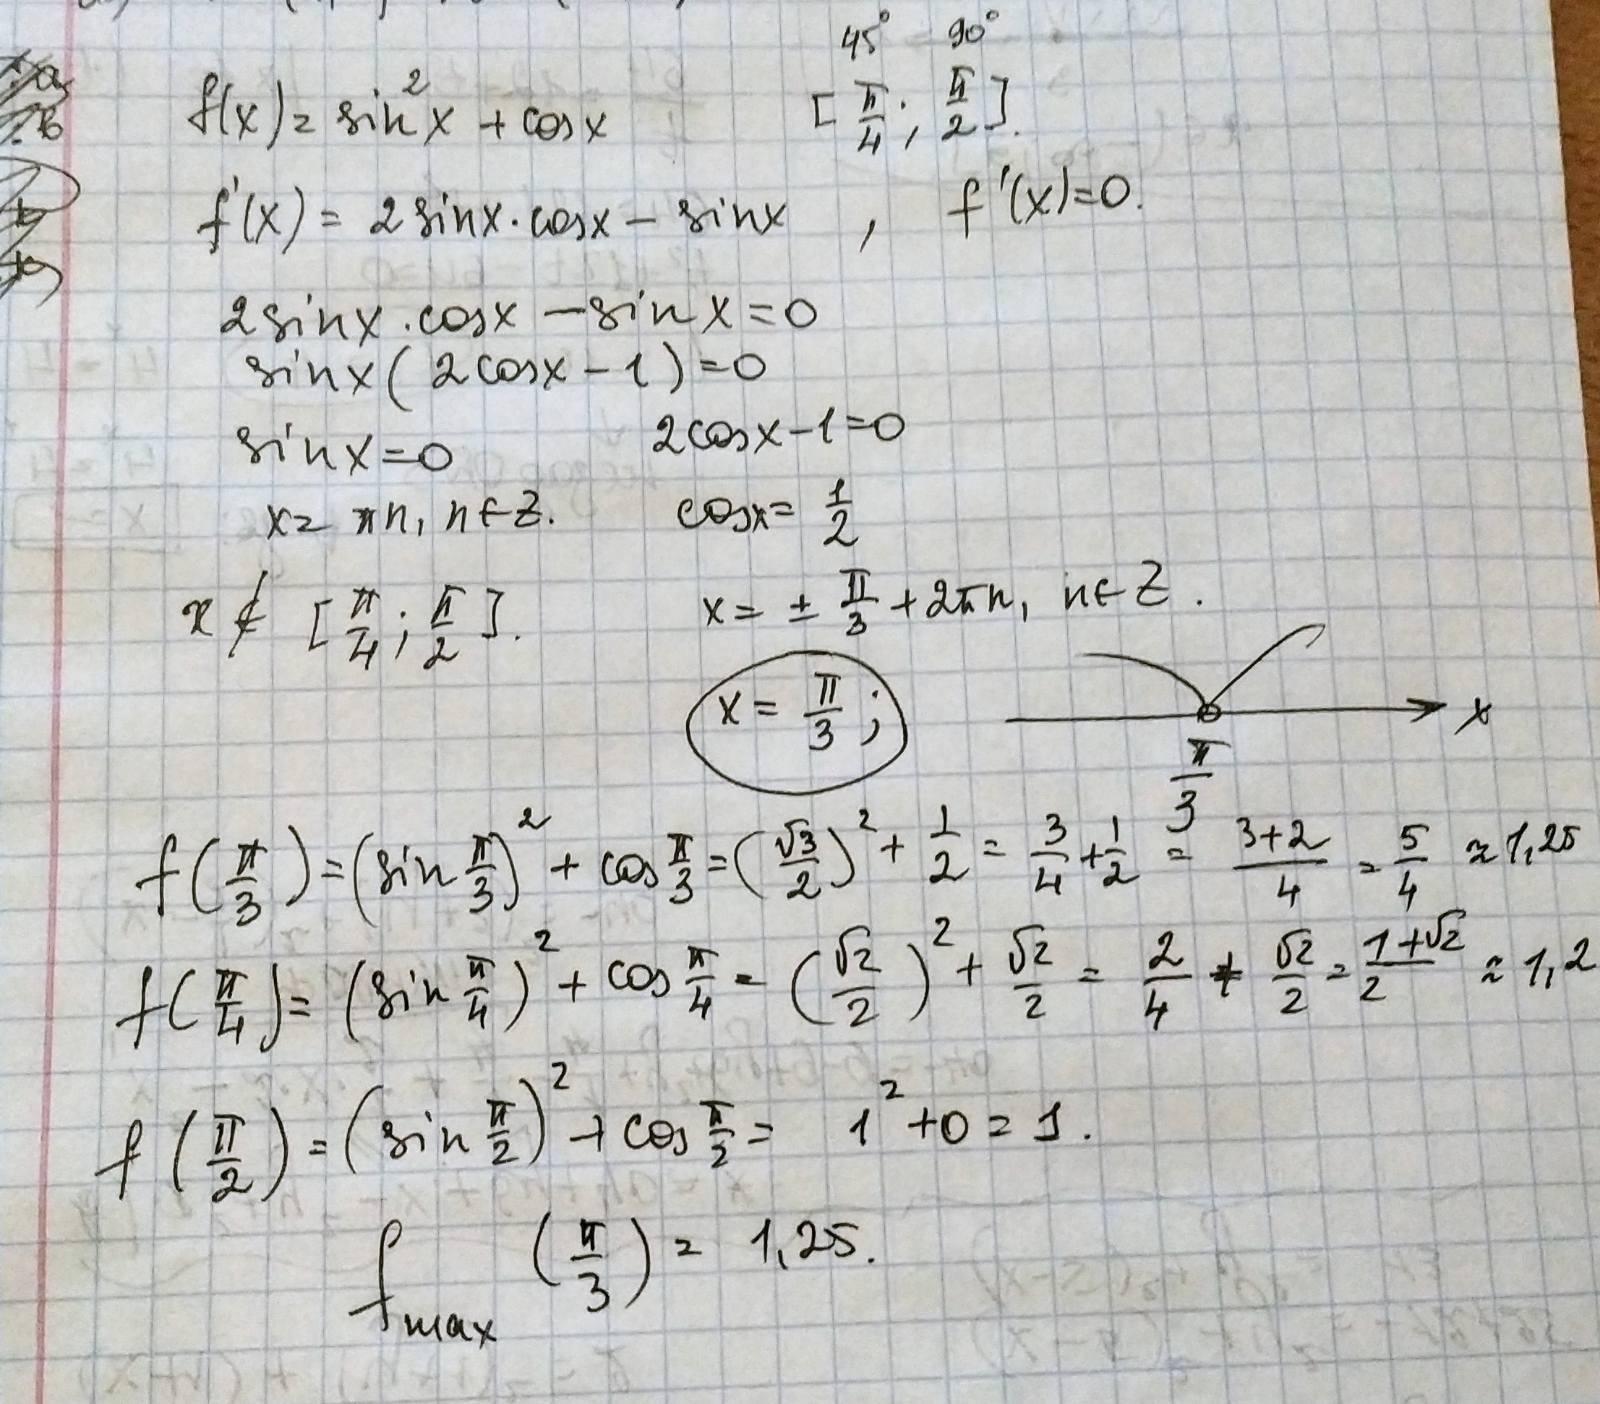 45° 90°
f(x) = sin²x + cosx [π/4; π/2].
f'(x) = 2sinx·cosx − sinx, f'(x)=0.
2sinx·cosx − sinx = 0
sinx(2cosx − 1) = 0
sinx = 0 2cosx − 1 = 0
x = πn, n∈Z. cosx = 1/2
x ∉ [π/4; π/2]. x = ± π/3 + 2πn, n∈Z.
x = π/3; x
π/3
f(π/3) = (sin π/3)² + cos π/3 = (√3/2)² + 1/2 = 3/4 + 1/2 = (3+2)/4 = 5/4 ≈ 1,25
f(π/4) = (sin π/4)² + cos π/4 = (√2/2)² + √2/2 = 2/4 + √2/2 = (1+√2)/2 ≈ 1,2
f(π/2) = (sin π/2)² + cos π/2 = 1² + 0 = 1.
f max (π/3) = 1,25.